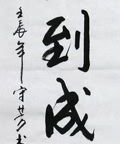 到成
壬辰年守芳书